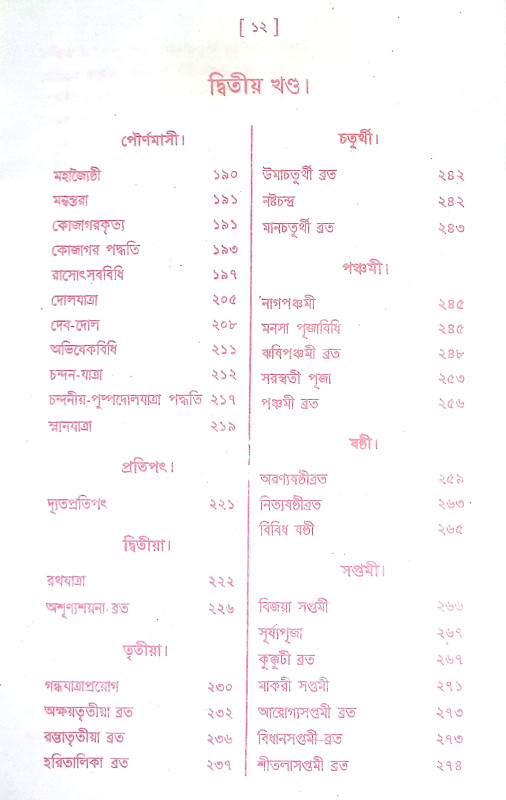 [ ১২ ]
দ্বিতীয় খণ্ড।
পৌর্ণমাসী।
মহাজ্যৈষ্ঠী ১৯০
মন্বন্তরা ১৯১
কোজাগরকৃত্য ১৯১
কোজাগর পদ্ধতি ১৯৩
রাসোৎসববিধি ১৯৭
দোলযাত্রা ২০৫
দেব-দোল ২০৮
অভিষেকবিধি ২১১
চন্দন-যাত্রা ২১২
চন্দনীয়-পুষ্পদোলযাত্রা পদ্ধতি ২১৭
স্নানযাত্রা ২১৯
প্রতিপৎ।
দ্যূতপ্রতিপৎ ২২১
দ্বিতীয়া।
রথযাত্রা ২২২
অশূণ্যশয়না-ব্রত ২২৬
তৃতীয়া।
গন্ধযাত্রাপ্রয়োগ ২৩০
অক্ষয়তৃতীয়া ব্রত ২৩২
রম্ভাতৃতীয়া ব্রত ২৩৬
হরিতালিকা ব্রত ২৩৭
চতুর্থী।
উমাচতুর্থী ব্রত ২৪২
নষ্টচন্দ্র ২৪২
মানচতুর্থী ব্রত ২৪৩
পঞ্চমী।
নাগপঞ্চমী ২৪৫
মনসা পূজাবিধি ২৪৫
ঋষিপঞ্চমী ব্রত ২৪৮
সরস্বতী পূজা ২৫৩
পঞ্চমী ব্রত ২৫৬
ষষ্ঠী।
অরণ্যষষ্ঠীব্রত ২৫৯
নিত্যষষ্ঠীব্রত ২৬৩
বিবিধ ষষ্ঠী ২৬৫
সপ্তমী।
বিজয়া সপ্তমী ২৬৬
সূর্য্যপূজা ২৬৭
কুক্কুটী ব্রত ২৬৭
মাকরী সপ্তমী ২৭১
আরোগ্যসপ্তমী ব্রত ২৭৩
বিধানসপ্তমী-ব্রত ২৭৩
শীতলাসপ্তমী ব্রত ২৭৪